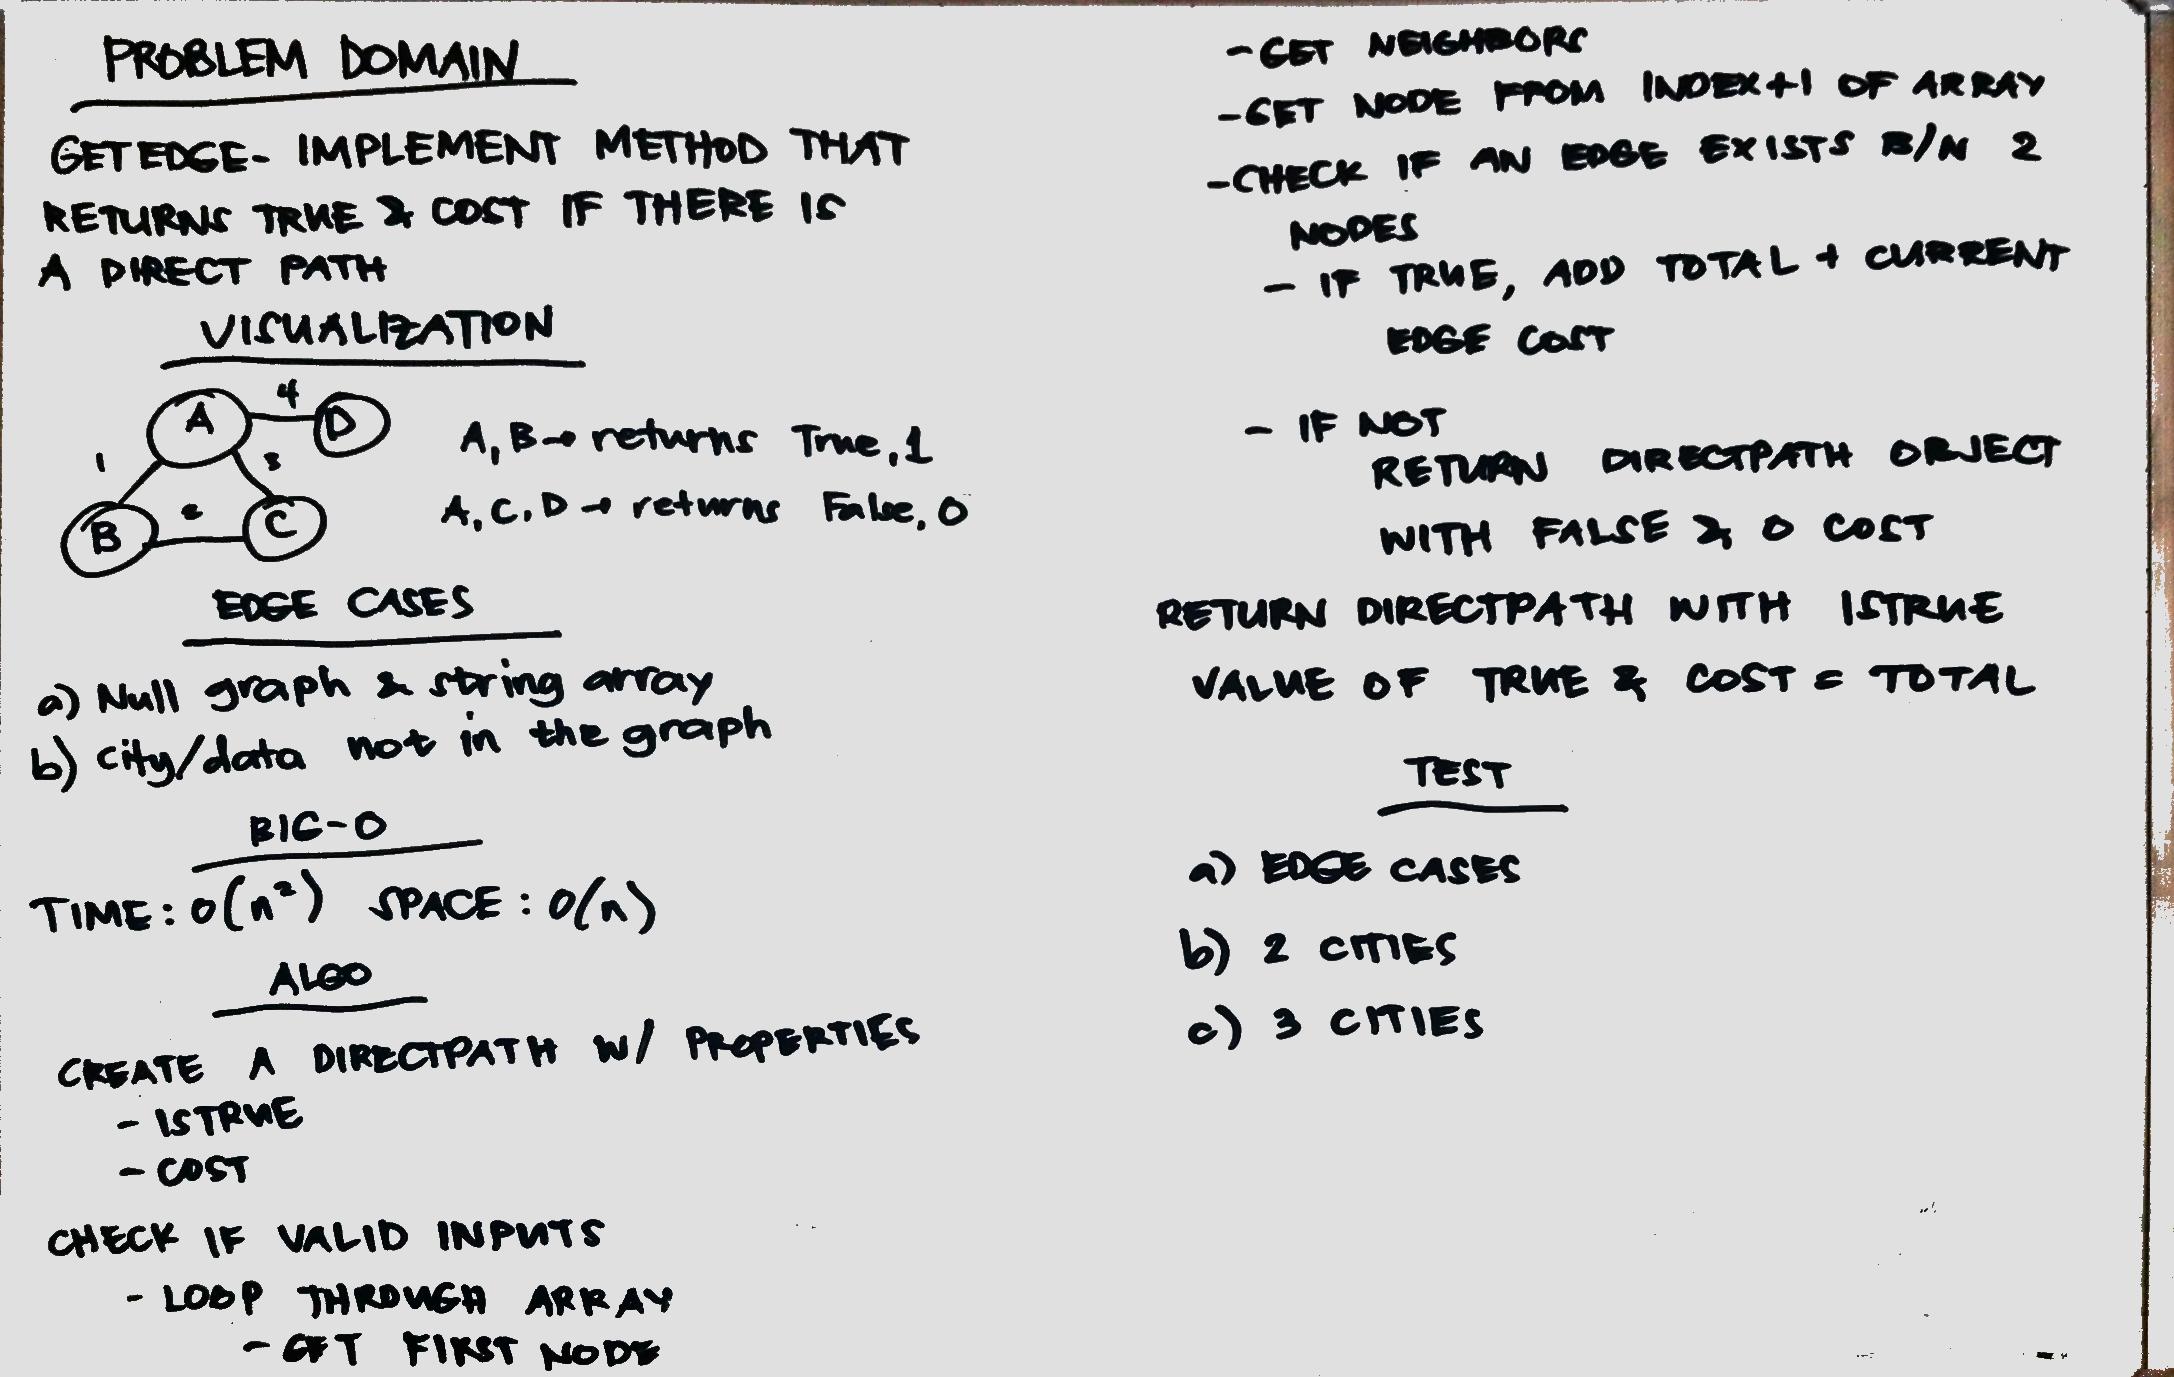 PROBLEM DOMAIN
GETEDGE- IMPLEMENT METHOD THAT
RETURNS TRUE & COST IF THERE IS
A DIRECT PATH
VISUALIZATION
A 4 D
1 3
B 2 C
A, B → returns True, 1
A, C, D → returns False, 0
EDGE CASES
a) Null graph & string array
b) city/data not in the graph
BIG-O
TIME: O(n²) SPACE: O(n)
ALGO
CREATE A DIRECTPATH W/ PROPERTIES
- ISTRUE
- COST
CHECK IF VALID INPUTS
- LOOP THROUGH ARRAY
- GET FIRST NODE
- GET NEIGHBORS
- GET NODE FROM INDEX+1 OF ARRAY
- CHECK IF AN EDGE EXISTS B/N 2
NODES
- IF TRUE, ADD TOTAL + CURRENT
EDGE COST
- IF NOT
RETURN DIRECTPATH OBJECT
WITH FALSE & 0 COST
RETURN DIRECTPATH WITH ISTRUE
VALUE OF TRUE & COST = TOTAL
TEST
a) EDGE CASES
b) 2 CITIES
c) 3 CITIES